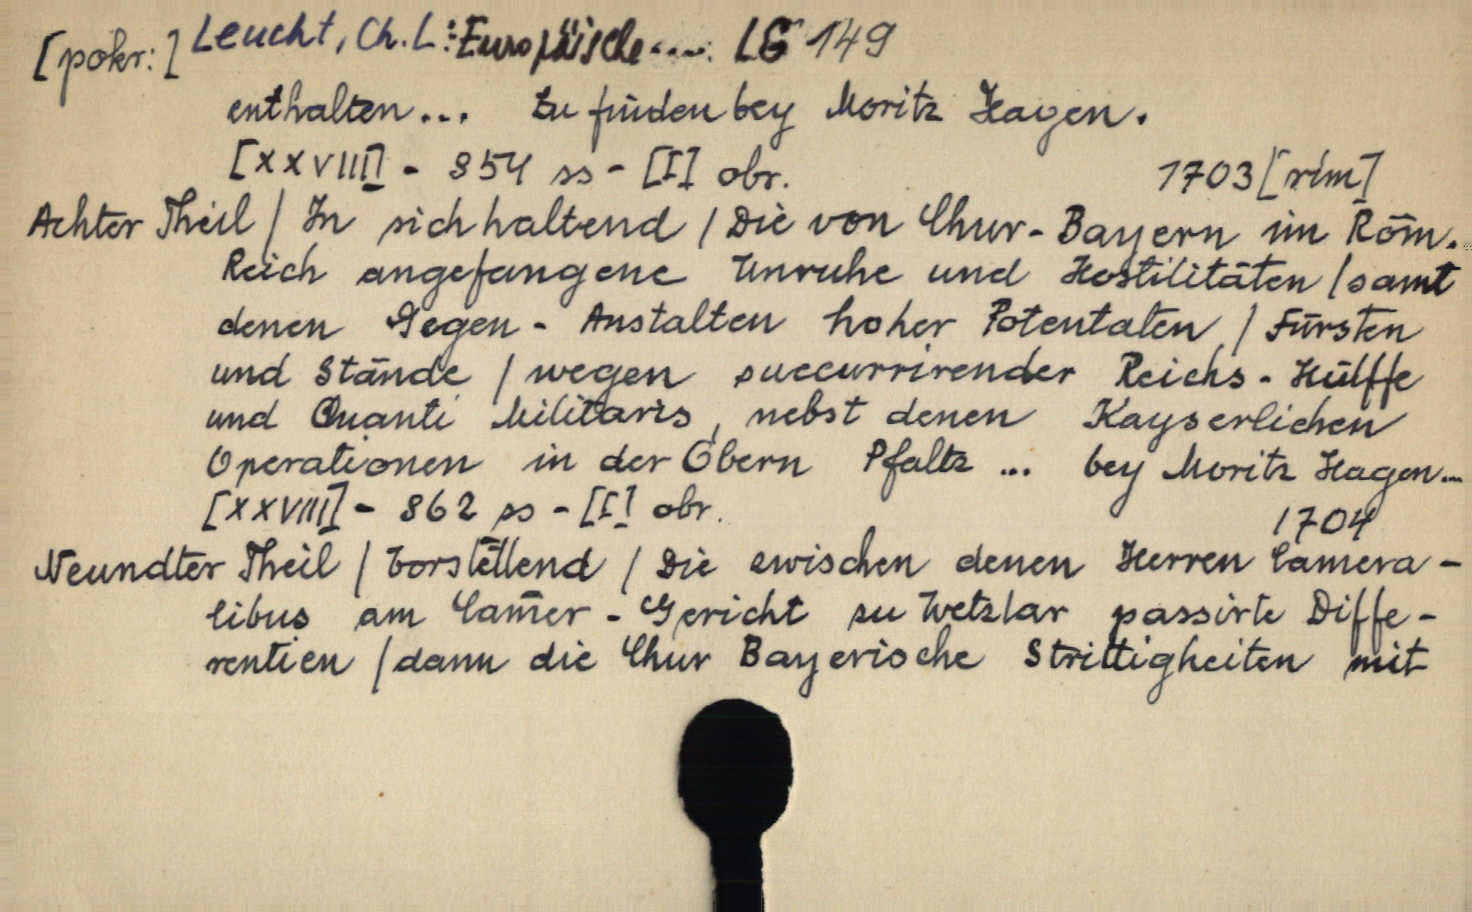 [pokr:] Leucht, Ch. L: Europäische.... LG 149
enthalten... Zu finden bey Moritz Hagen.
[XXVIII] - 854 ss - [I] obr. 1703 [rím]
Achter Theil / In sich haltend / Die von Chur-Bayern im Röm.
Reich angefangene Unruhe und Hostilitäten / samt
denen Gegen-Anstalten hoher Potentaten / Fürsten
und Stände / wegen succurrirender Reichs-Hülffe
und Quanti Militaris, nebst denen Kayserlichen
Operationen in der Obern Pfaltz ... bey Moritz Hagen...
[XXVIII] - 862 ss - [I] obr. 1704
Neundter Theil / Vorstellend / Die zwischen denen Herren Camera-
libus am Cam̄er-Gericht zu Wetzlar passirte Diffe-
rentien / dann die Chur Bayerische Strittigkeiten mit